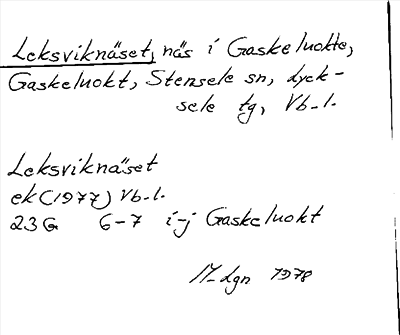 Leksviknäset, näs i Gaskeluokte,
Gaskeluokt, Stensele sn, Lyck-
sele tg, Vb.l.
Leksviknäset
ek (1977) Vb.l.
23G 6-7 i-j Gaskeluokt
M-Lgn 1978